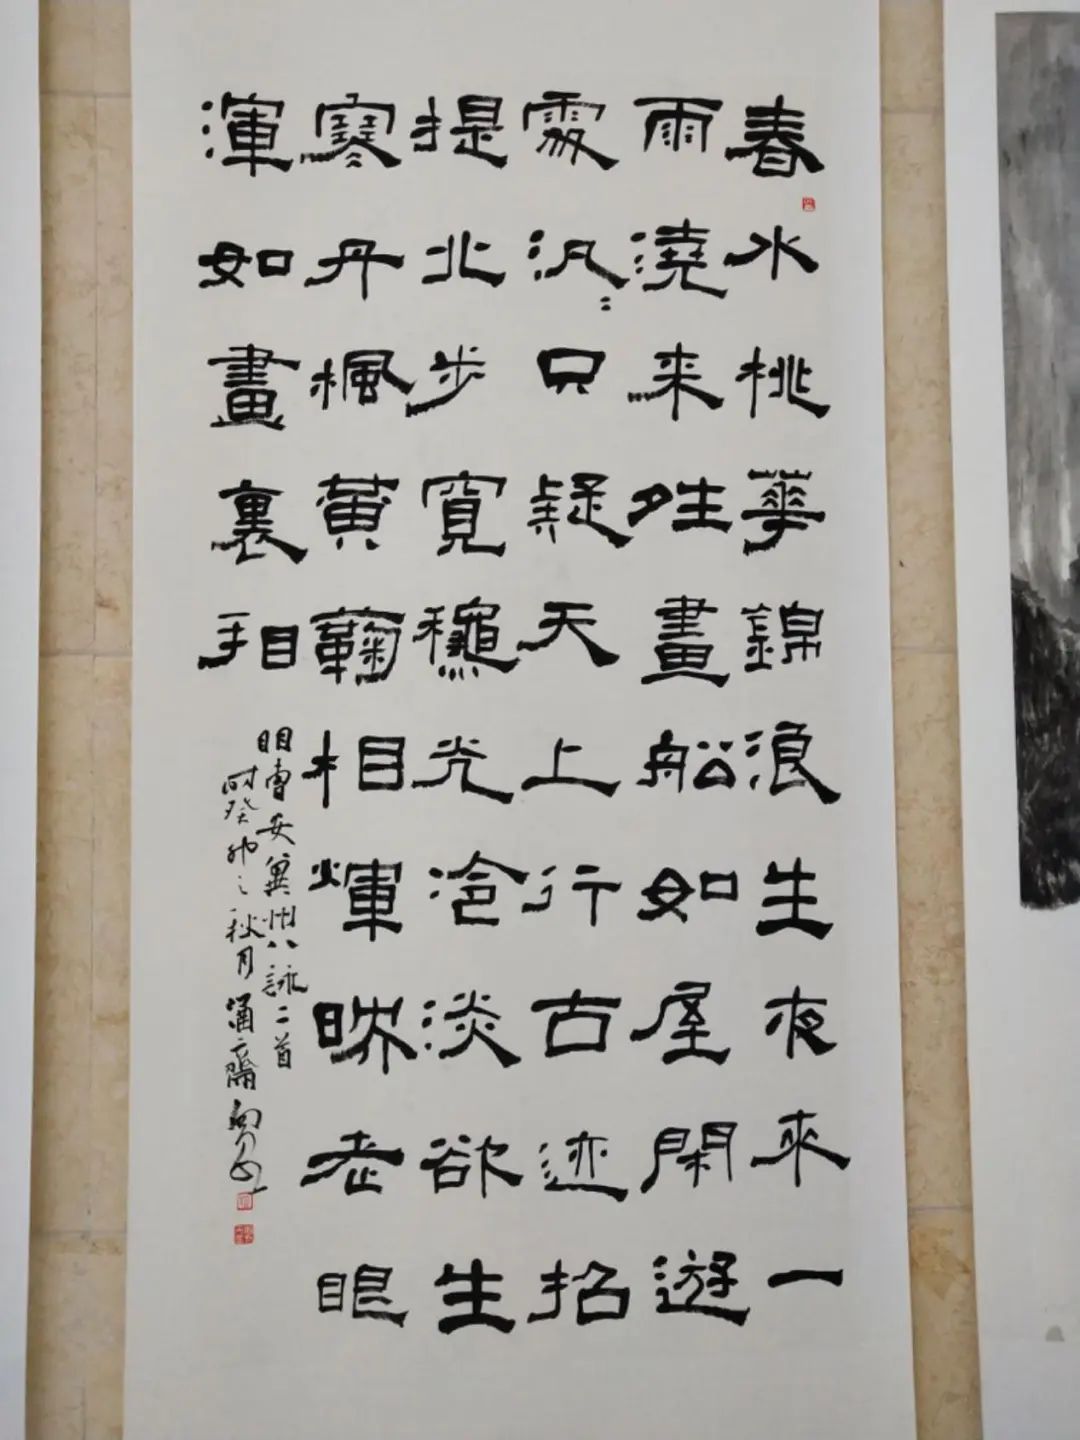 春水桃華錦浪生夜來一
雨澆来往畫船如屋閑遊
處汎〻只疑天上行古迹招
提北步寬龝光冷淡欲生
寒丹楓黄蘜相輝映老眼
渾如畫裏看
明曹安冀州八詠二首
时癸卯之秋月齋